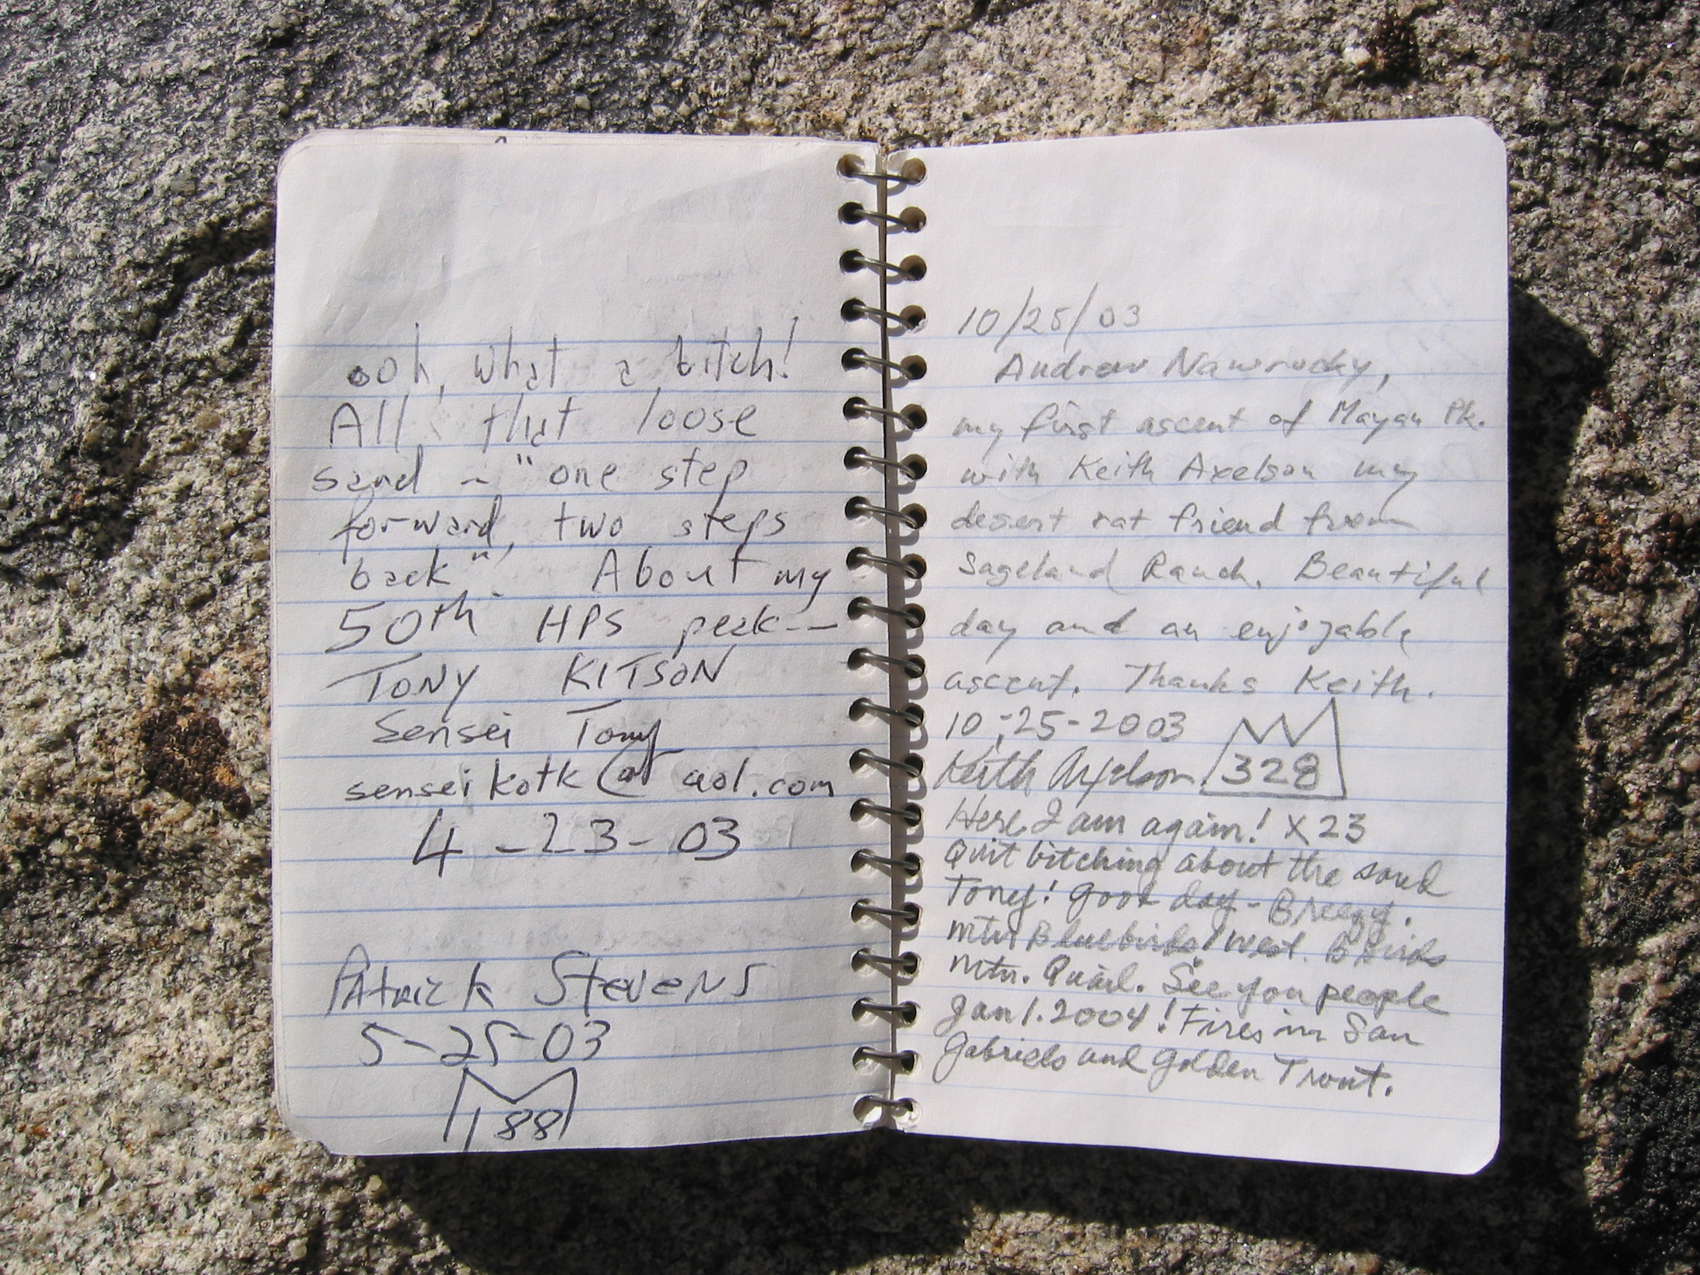 ooh, what a bitch!
All that loose
sand – "one step
forward, two steps
back". About my
50th HPS peak--
TONY KITSON
Sensei Tony
senseikotk@aol.com
4-23-03
Patrick Stevens
5-25-03
188
10/25/03
Andrew Nawrocky,
my first ascent of Mayan Pk.
with Keith Axelson my
desert rat friend from
Sageland Ranch. Beautiful
day and an enjoyable
ascent. Thanks Keith.
10-25-2003
Keith Axelson 328
Here I am again! X23
Quit bitching about the sand
Tony! Good day - Breezy.
Mtn Bluebirds! West. B birds
Mtn. Quail. See you people
Jan 1. 2004! Fires in San
Gabriels and Golden Trout.